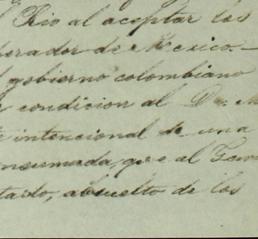 Rio al aceptar los
perador de Mexico.—
gobierno colombiano
condicion al Dr. M
intencional de una
nsumada, que al
tado, absuelto de los